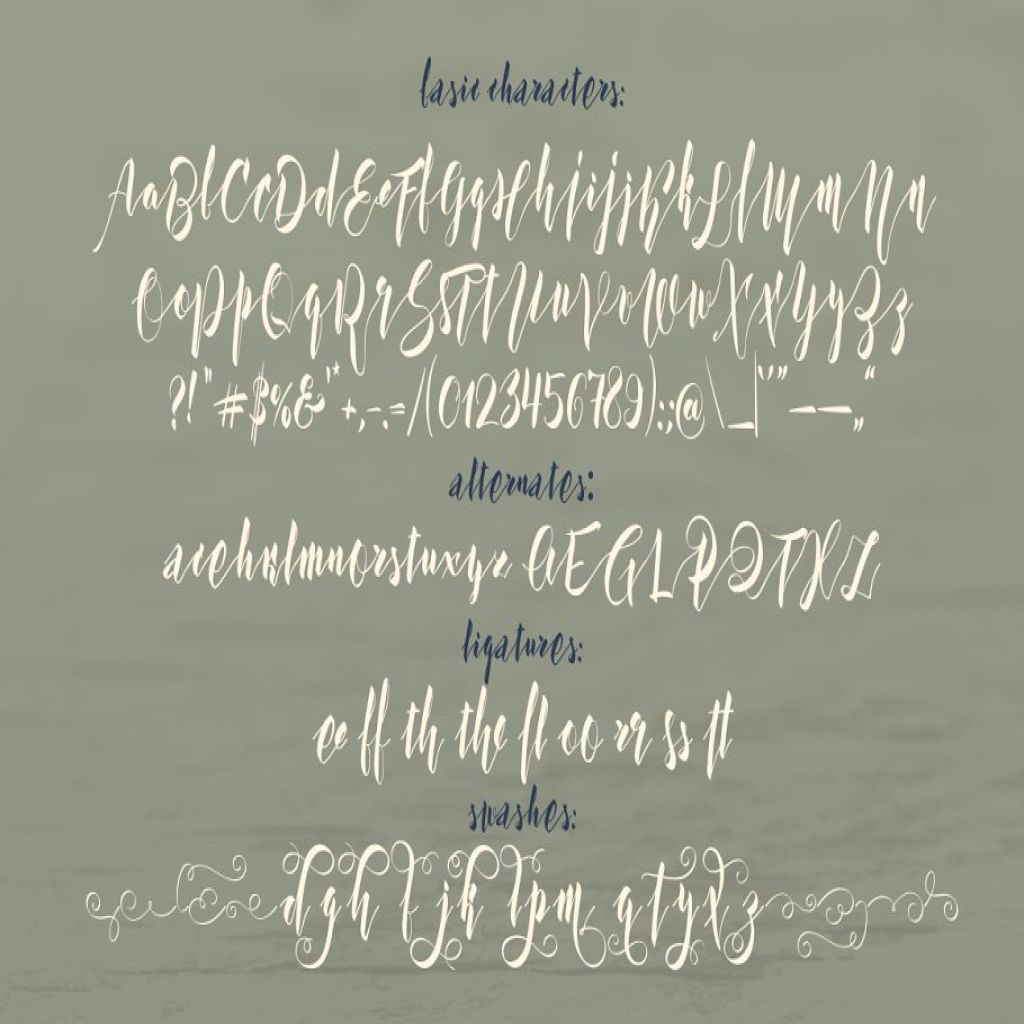 basic characters:
AaBbCcDdEeFfGgHhIiJjKkLlMmNn
OoPpQqRrSsTtUuVvWwXxYyZz
?!"#$%&'*+,-.=/(0123456789):;@\_|‘’” –—„“
alternates:
acehklmnorstuxyz AEGLPQTXZ
ligatures:
ee ff th the fl oo rr ss tt
swashes:
d g h l j k l p m q t y z